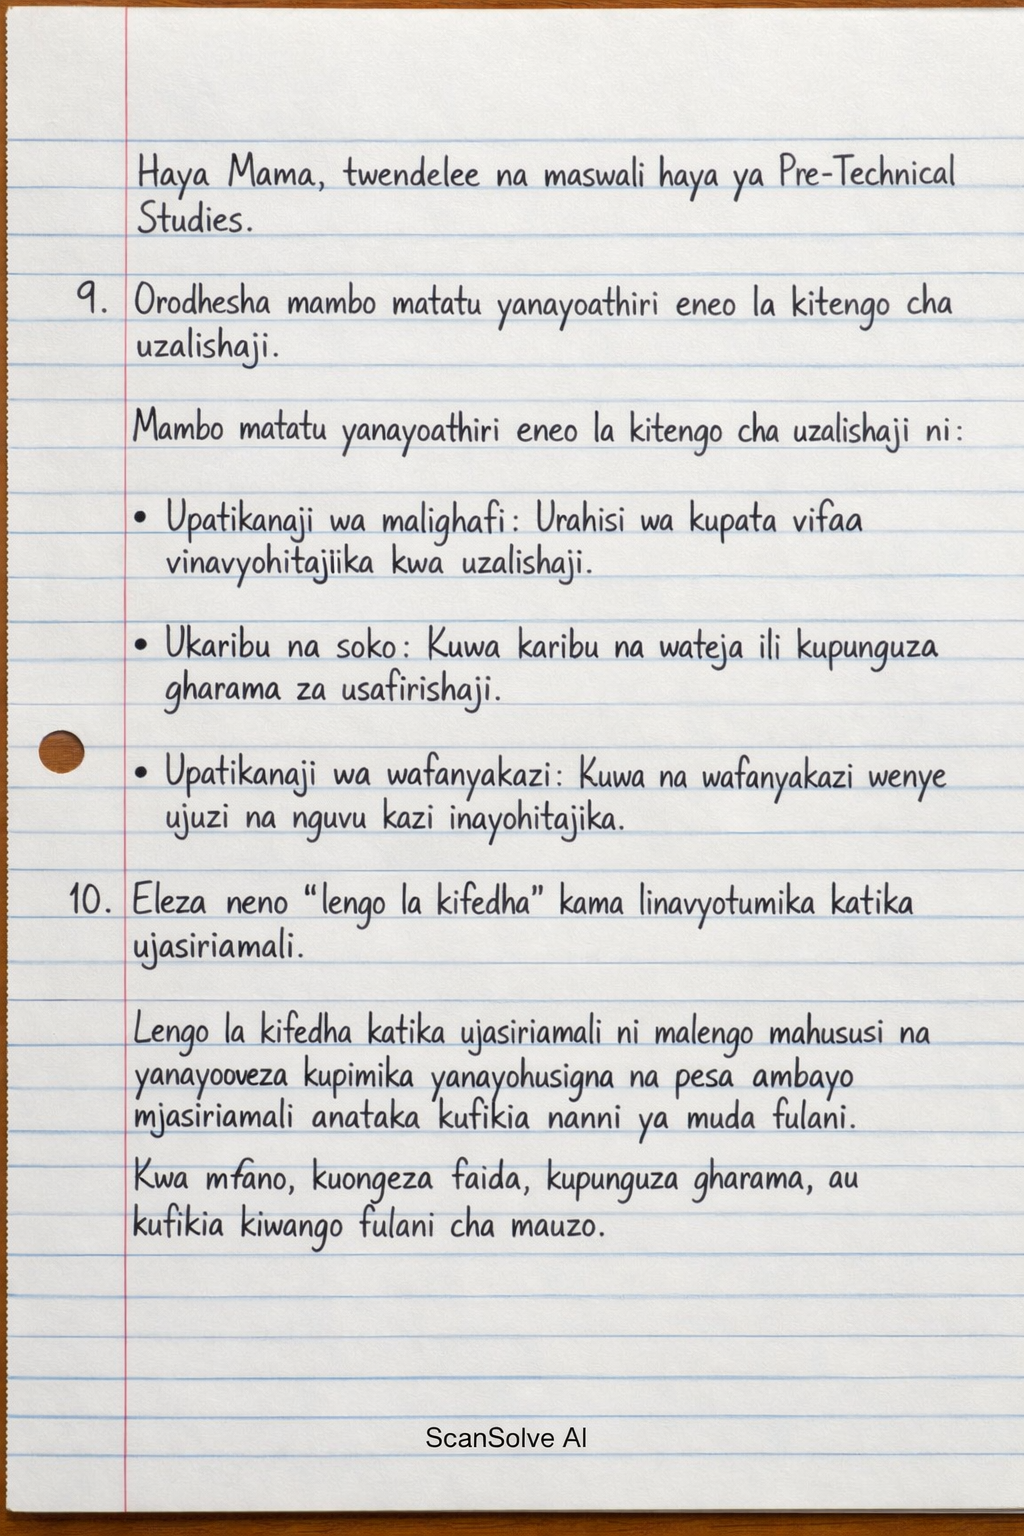 Haya Mama, twendelee na maswali haya ya Pre-Technical
Studies.
9. Orodhesha mambo matatu yanayoathiri eneo la kitengo cha
uzalishaji.
Mambo matatu yanayoathiri eneo la kitengo cha uzalishaji ni:
• Upatikanaji wa malighafi: Urahisi wa kupata vifaa
vinavyohitajiika kwa uzalishaji.
• Ukaribu na soko: Kuwa karibu na wateja ili kupunguza
gharama za usafirishaji.
• Upatikanaji wa wafanyakazi: Kuwa na wafanyakazi wenye
ujuzi na nguvu kazi inayohitajika.
10. Eleza neno “lengo la kifedha” kama linavyotumika katika
ujasiriamali.
Lengo la kifedha katika ujasiriamali ni malengo mahususi na
yanayooveza kupimika yanayohusigna na pesa ambayo
mjasiriamali anataka kufikia nanni ya muda fulani.
Kwa mfano, kuongeza faida, kupunguza gharama, au
kufikia kiwango fulani cha mauzo.
ScanSolve AI